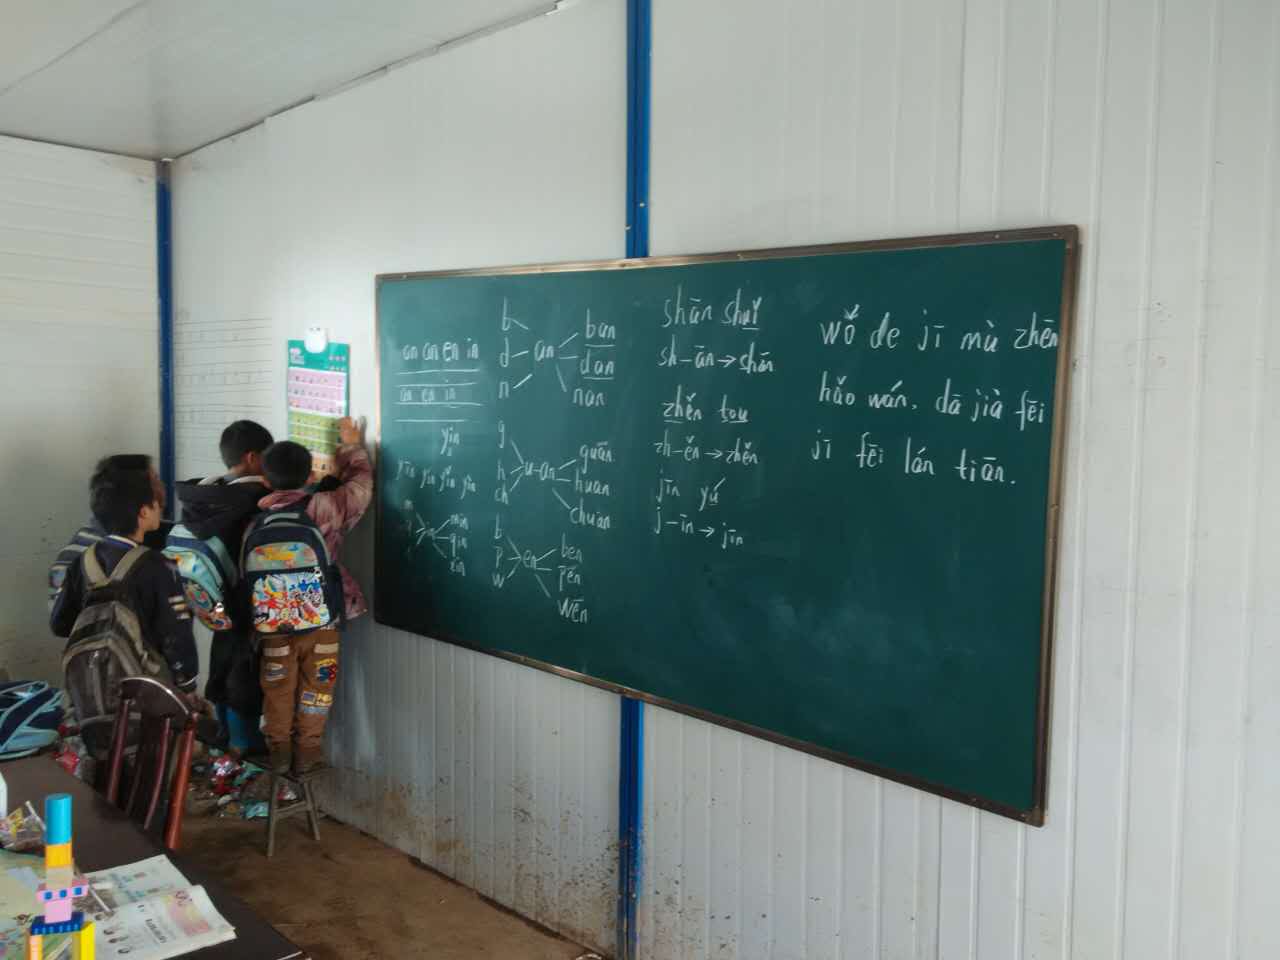 an an en in
an en in
yin
yīn yín yǐn yìn
min
qin
xin
b
d
n
an
ban
dan
nan
g
h
ch
u-an
guān
huan
chuan
b
p
w
en
ben
pēn
wēn
shān shuǐ
sh-ān→shān
zhěn tou
zh-ěn→zhěn
jīn yú
j-īn→jīn
wǒ de jī mù zhēn
hǎo wán, dā jià fēi
jī fēi lán tiān.